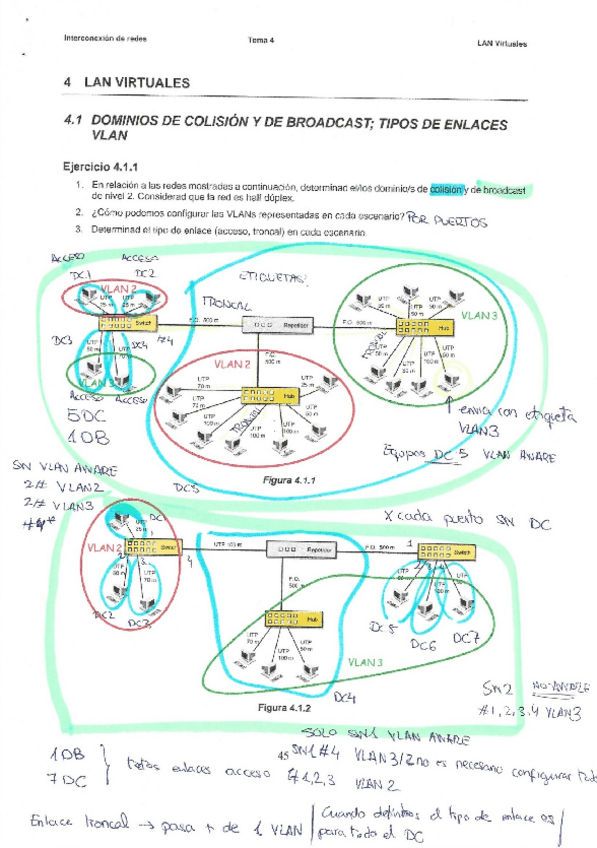 Interconexión de redes Tema 4 LAN Virtuales
4 LAN VIRTUALES
4.1 DOMINIOS DE COLISIÓN Y DE BROADCAST; TIPOS DE ENLACES
VLAN
Ejercicio 4.1.1
1. En relación a las redes mostradas a continuación, determinad el/los dominio/s de colisión y de broadcast
de nivel 2. Considerad que la red es half dúplex.
2. ¿Cómo podemos configurar las VLANs representadas en cada escenario? POR PUERTOS
3. Determinad el tipo de enlace (acceso, troncal) en cada escenario.
ACCESO ACCESO
DC1 DC2 ETIQUETAS
VLAN 2 TRONCAL
UTP UTP
Switch F.O. 500 m Repetidor F.O. 500 m Hub VLAN 3
DC3 DC4 #4
F.O.
500 m
VLAN 2
ACCESO ACCESO
Hub TRONCAL
5DC
1DB
envia con etiqueta
VLAN3
Equipos DC 5 VLAN AWARE
SW VLAN AWARE
2# VLAN2
2# VLAN3
DC5
Figura 4.1.1
X cada puerto SW DC
VLAN 2 Switch UTP 100 m Repetidor F.O. 500 m Switch
DC2 DC3
F.O.
500 m
Hub
DC5 DC6 DC7
VLAN 3
DC4
Figura 4.1.2
SW2 NO-AWARE
#1,2,3,4 VLAN3
SOLO SW1 VLAN AWARE
1DB
7DC
todos enlaces acceso
45 SW1#4 VLAN3/2 no es necesario configurar
#1,2,3 VLAN 2
Enlace troncal → pasa + de 1 VLAN
Cuando definimos el tipo de enlace es
para todo el DC